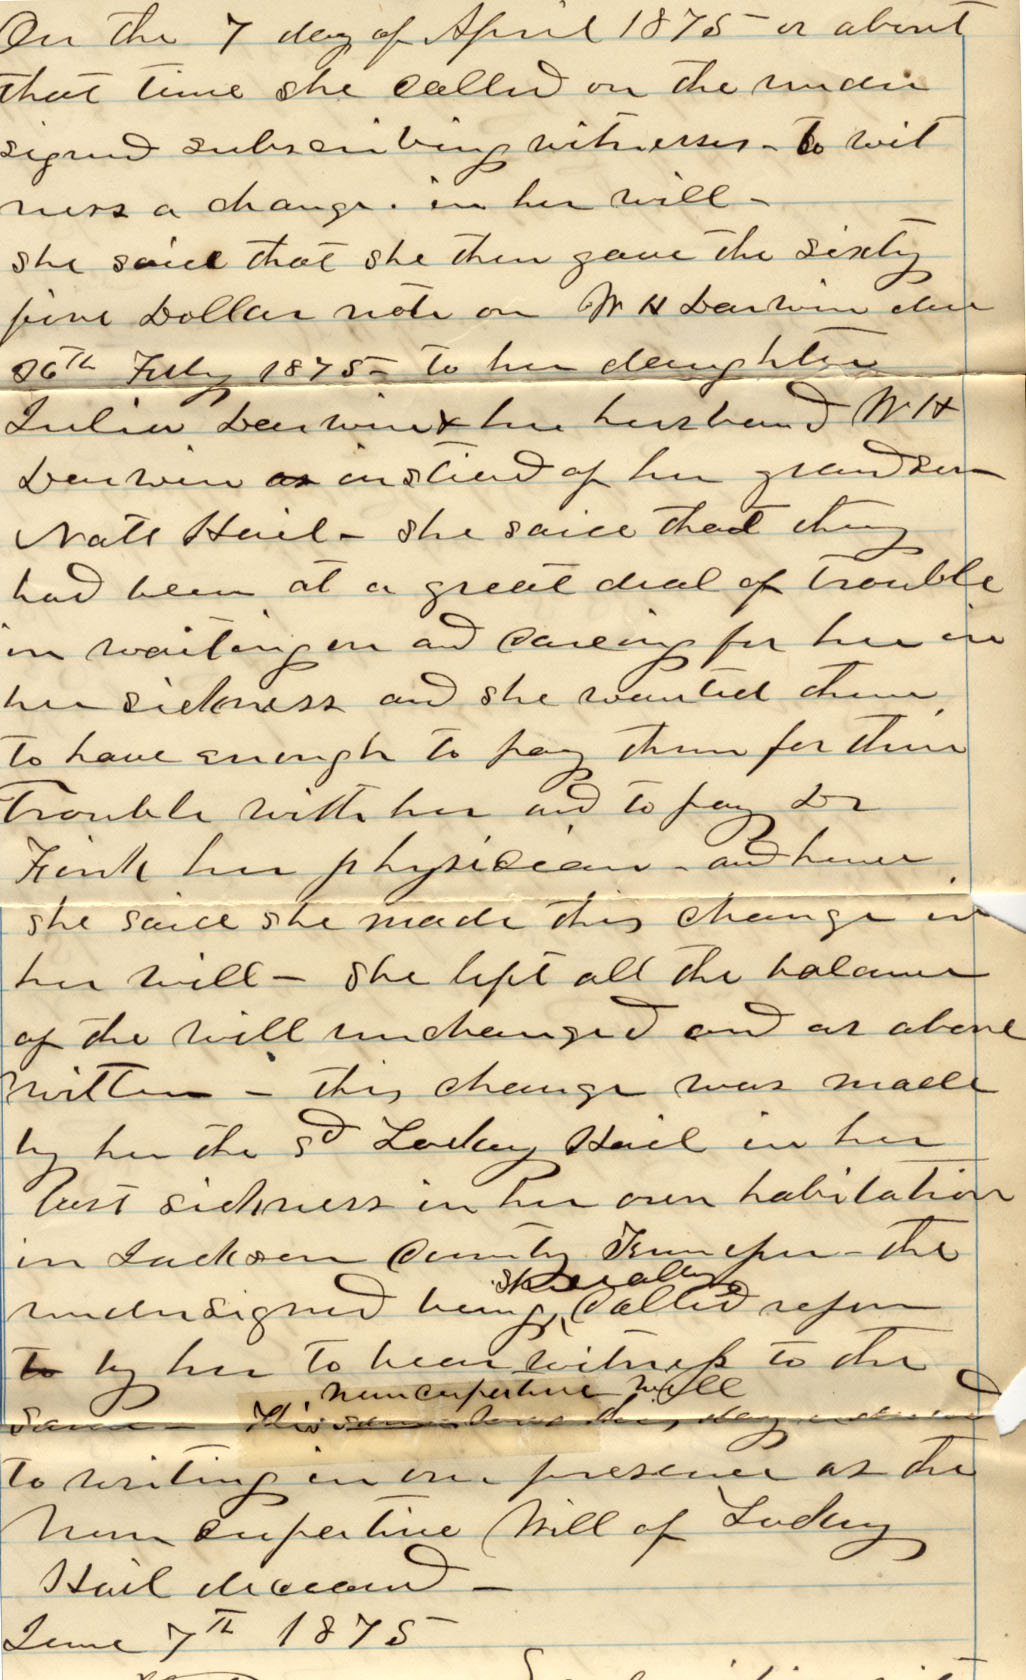 On the 7 day of April 1875 or about
that time she called on the under
signed subscribing witnesses - to wit
ness a change in her will -
she said that she then gave the sixty
five Dollar note on W H Darwin due
26th Feby 1875 - to her daughter
Julia Darwin & her husband W H
Darwin as instead of her grandson
Natt Hail - she said that they
had been at a great deal of trouble
in waiting on and careing for her in
her sickness and she wanted them
to have enough to pay them for their
Trouble with her and to pay Dr
Fink her physician - and hence
she said she made this change in
her will - She left all the balance
of the will unchanged and as above
written - this change was made
by her the sd Lockey Hail in her
last sickness in her own habitation
in Jackson County Tennessee - the
specially
undersigned being, called upon
to by her to bear witness to the
nuncupertive will
same - This same was this day reduced
to writing in our presence as the
Nuncupertive Will of Lockey
Hail deceased -
June 7th 1875